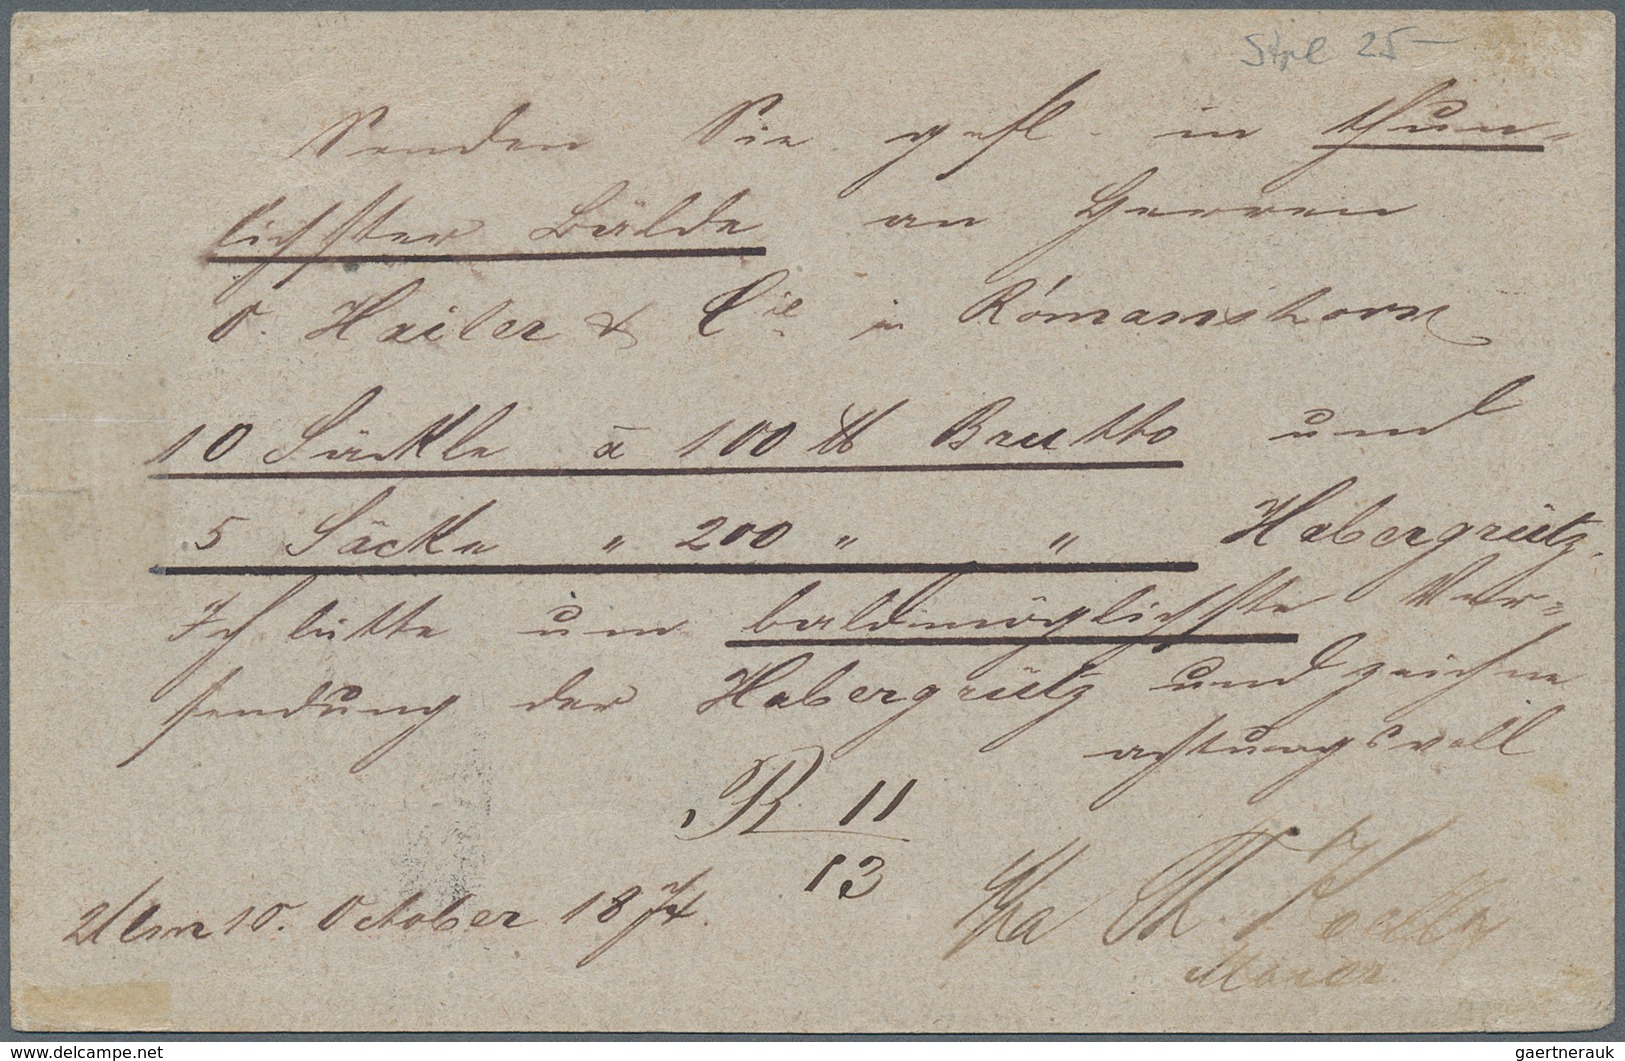 Stpl 25 —
Senden Sie gefl. in thun-
lichster Bälde an Herren
O. Hailer & Cie in Rómanshorn
10 Säckle à 100 ℔ Brutto und
5 Säcke " 200 " " Habergrütz.
Ich bitte um baldmöglichste Ver-
sendung der Habergrütz und zeichne
achtungsvoll
R 11
13
Ulm 10. October 1874.
Th.
delcampe.net
gaertnerauk